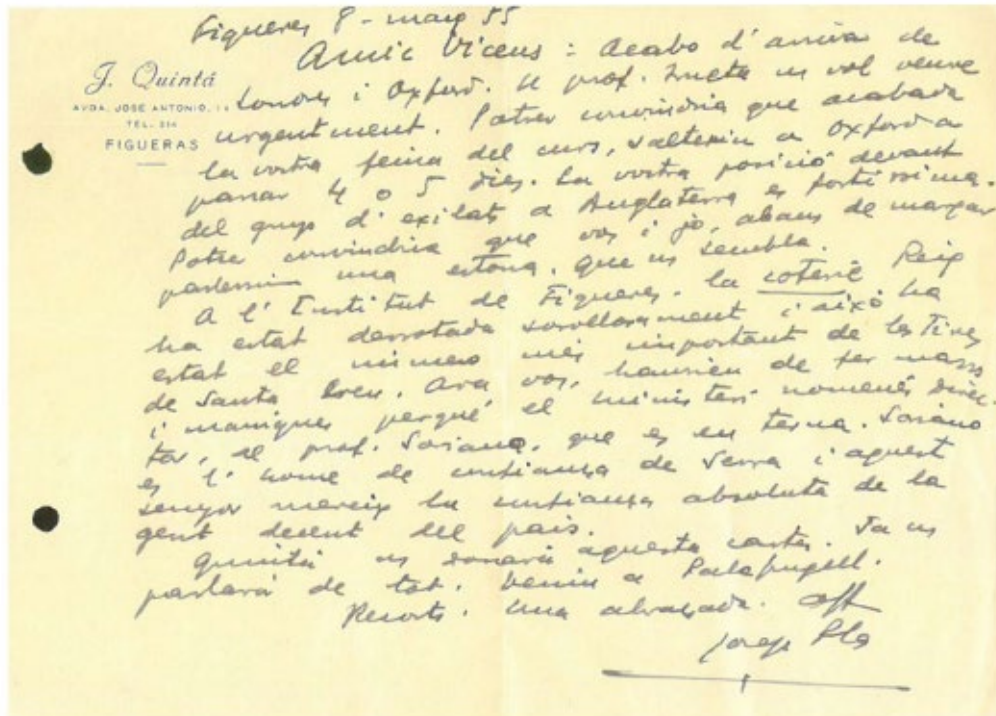 J. Quintá
AVDA. JOSE ANTONIO, 14
TEL. 214
FIGUERAS
Figueres 8 - maig 55
Amic Vicens : Acabo d'arrivar de
Londres i Oxford. El prof. Trueta us vol veure
urgentment. Potser convindria que acabada
la vostra feina del curs, saltessiu a Oxford a
passar 4 o 5 dies. La vostra posició devant
del grup d'exilats a Anglaterra es fortíssima.
Potser convindria que vos i jo, abans de marxar
parlessim una estona. que us sembla.
A l'Institut de Figueres. la coterie Reig
ha estat derrotada sorollosament i això ha
estat el número més important de les Fires
de Santa Creu. Ara vos, haurieu de fer massa
i mànigues perqué el ministeri nomenés direc-
tor, al prof. Soriano, que es en terna. Soriano
es l'home de confiança de Serra i aquest
senyor mereix la confiança absoluta de la
gent decent del pais.
Quintà us donarà aquesta carta. Ja us
parlarà de tot. Veniu a Palafrugell.
Records. Una abraçada. aff
Josep Pla